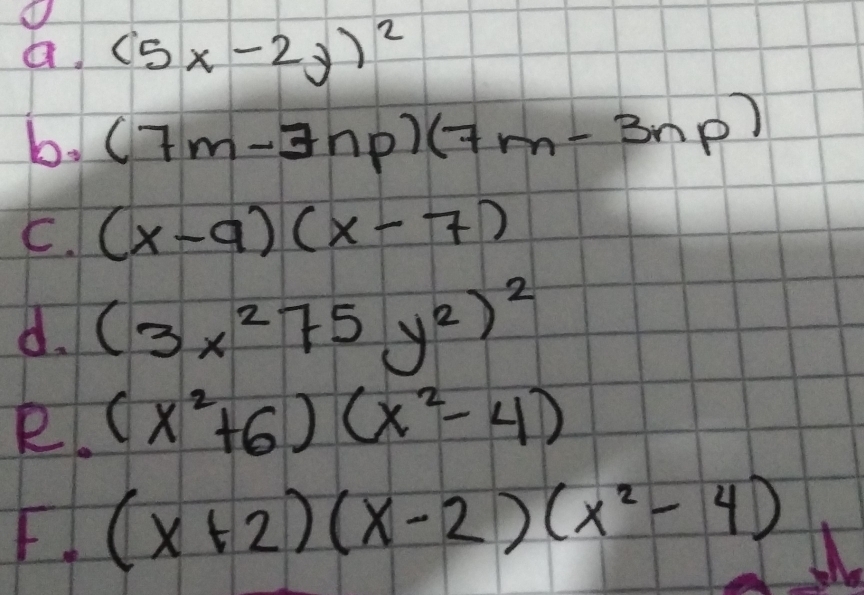 a. (5x - 2y)²
b. (7m - 3np)(7m - 3np)
c. (x - 9)(x - 7)
d. (3x² 75 y²)²
e. (x² + 6)(x² - 4)
F. (x + 2)(x - 2)(x² - 4)